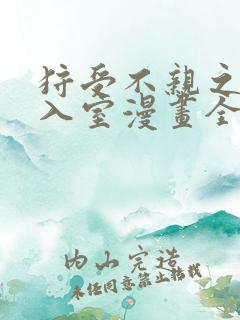 狩受不親之
入室漫畫全
内山完造
未经同意禁止转载